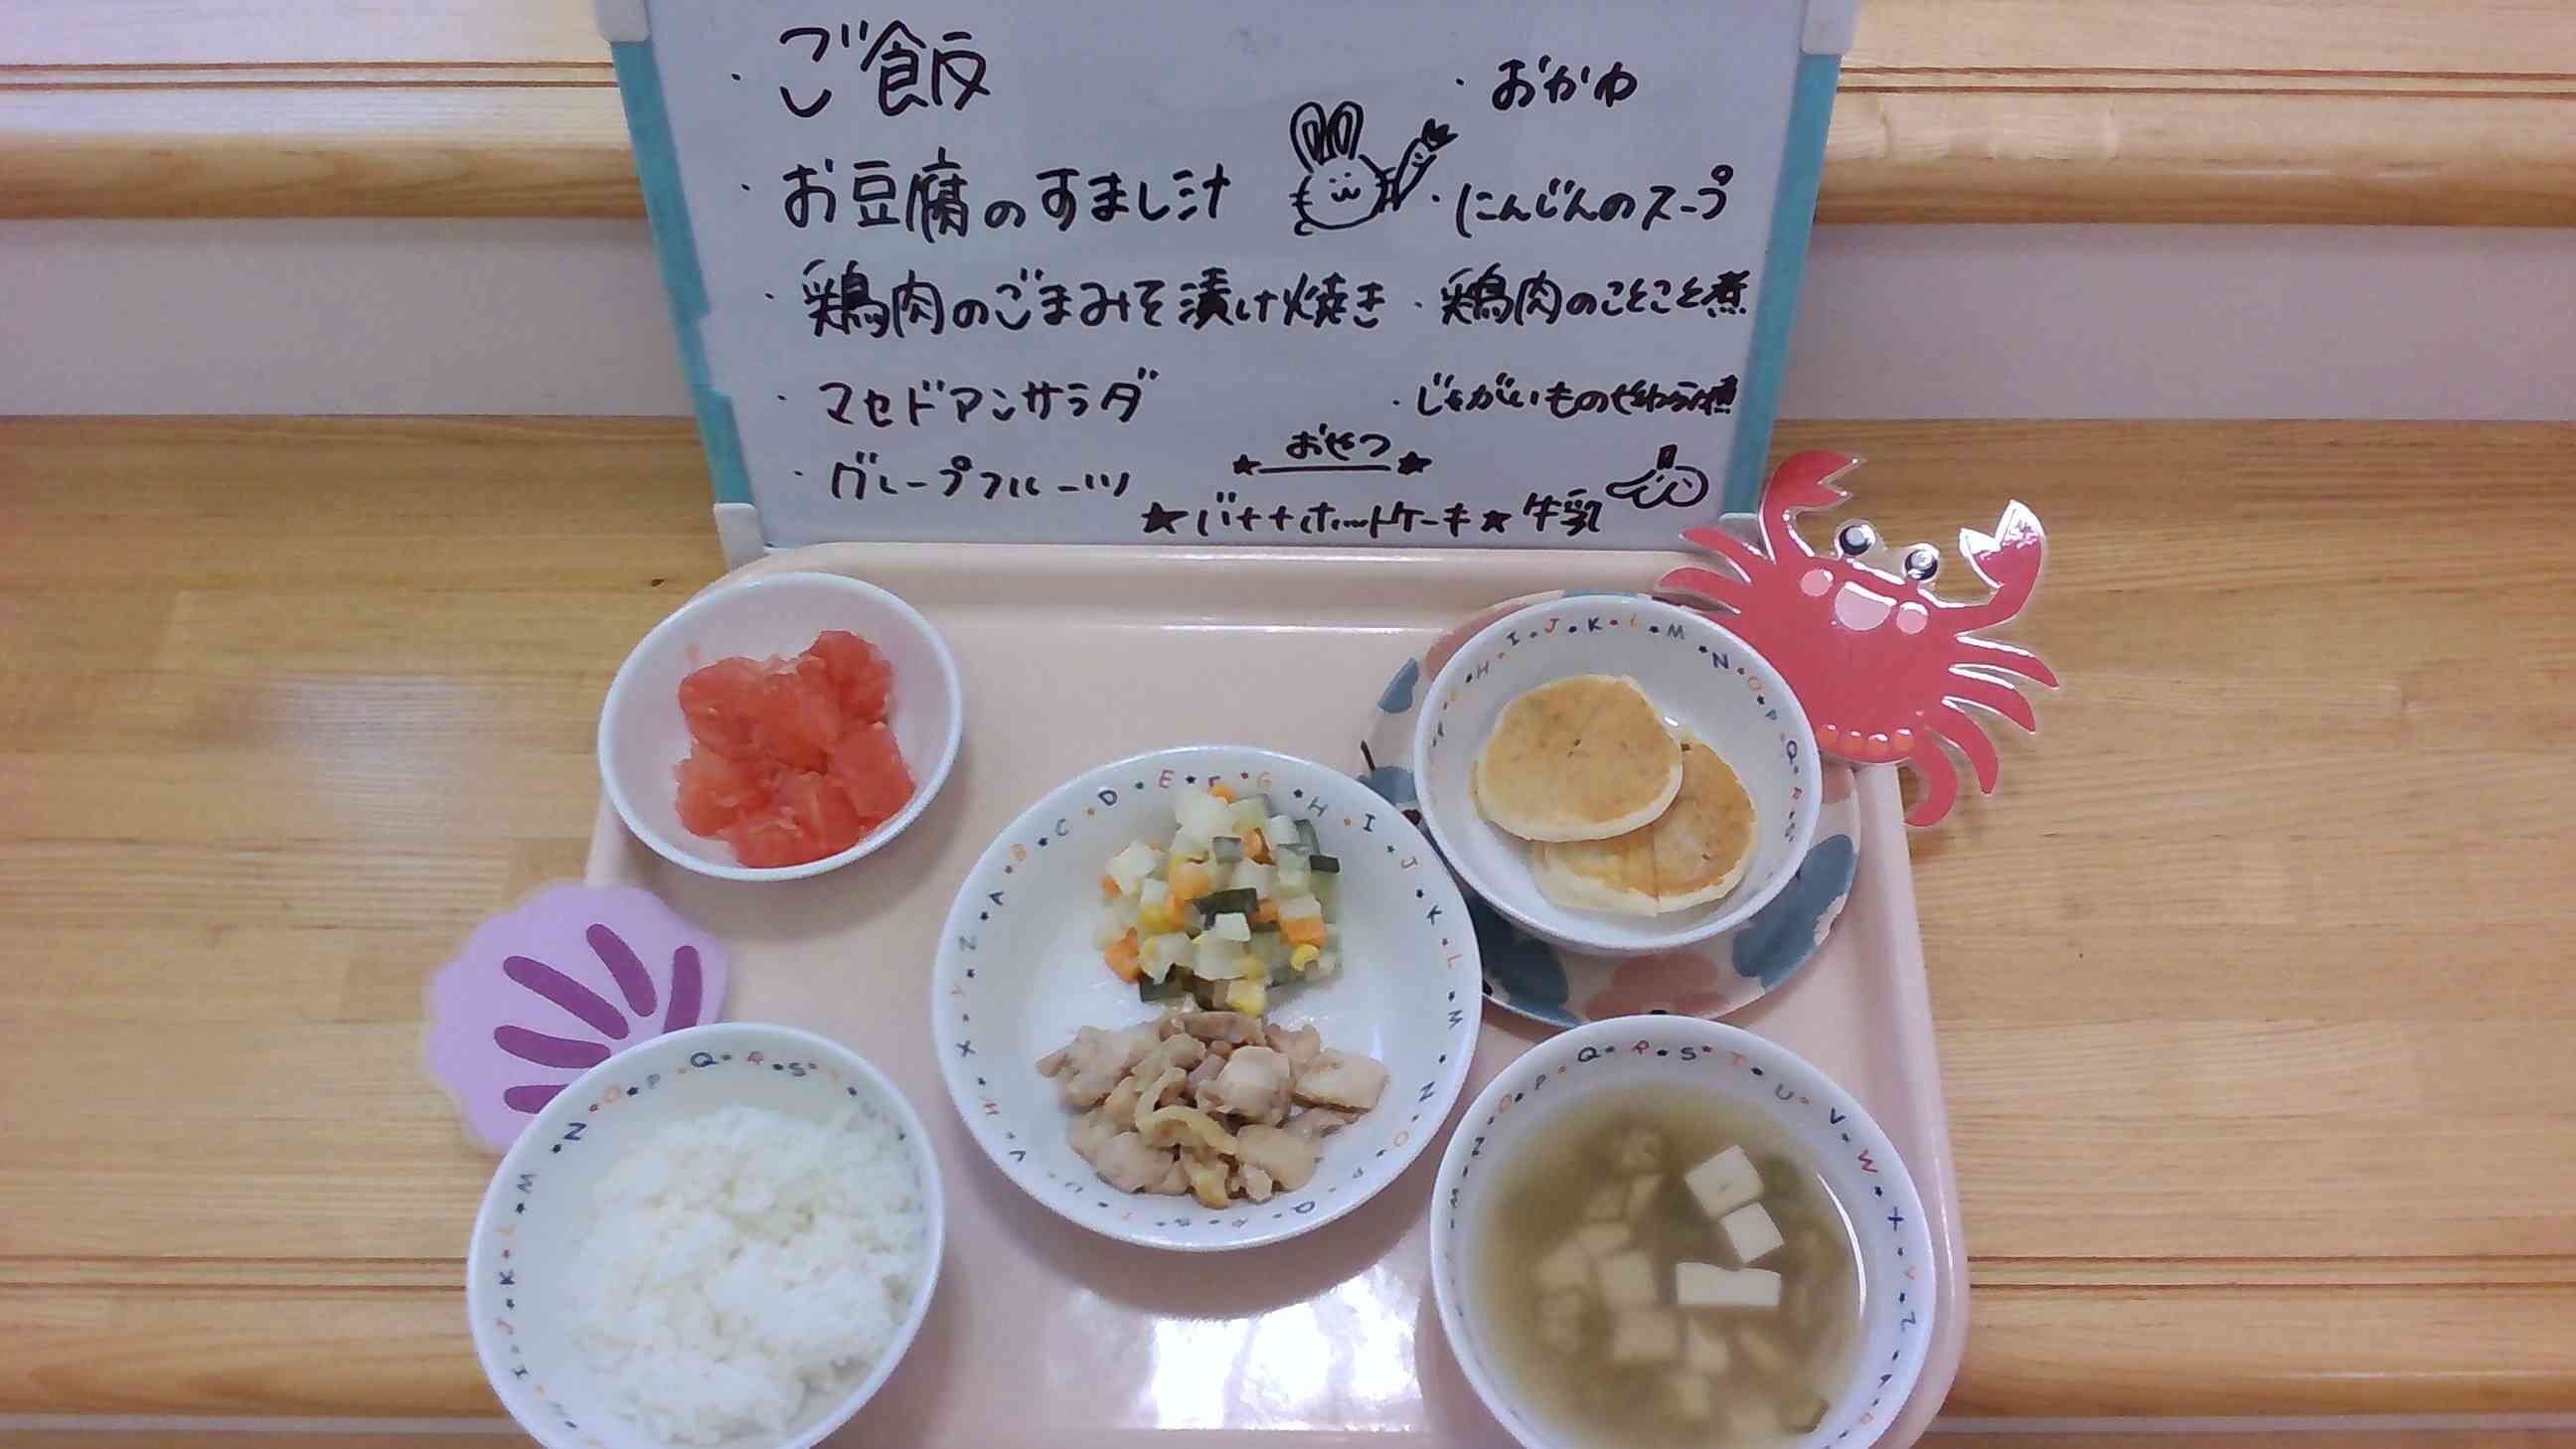 ・ご飯
・お豆腐のすまし汁
・鶏肉のごまみそ漬け焼き
・マセドアンサラダ
・グレープフルーツ
・おかゆ
・にんじんのスープ
・鶏肉のことこと煮
・じゃがいもの
おやつ
★バナナホットケーキ★牛乳
H・I・J・K・L・M・N・O・P・Q・R・S
A・B・C・D・E・F・G・H・I・J・K・L・M・N・O・P・Q・R・S・T・U・V・W・X・Y・Z
I・J・K・L・M・N・O・P・Q・R・S
M・N・O・P・Q・R・S・T・U・V・W・X・Y・Z・A・B